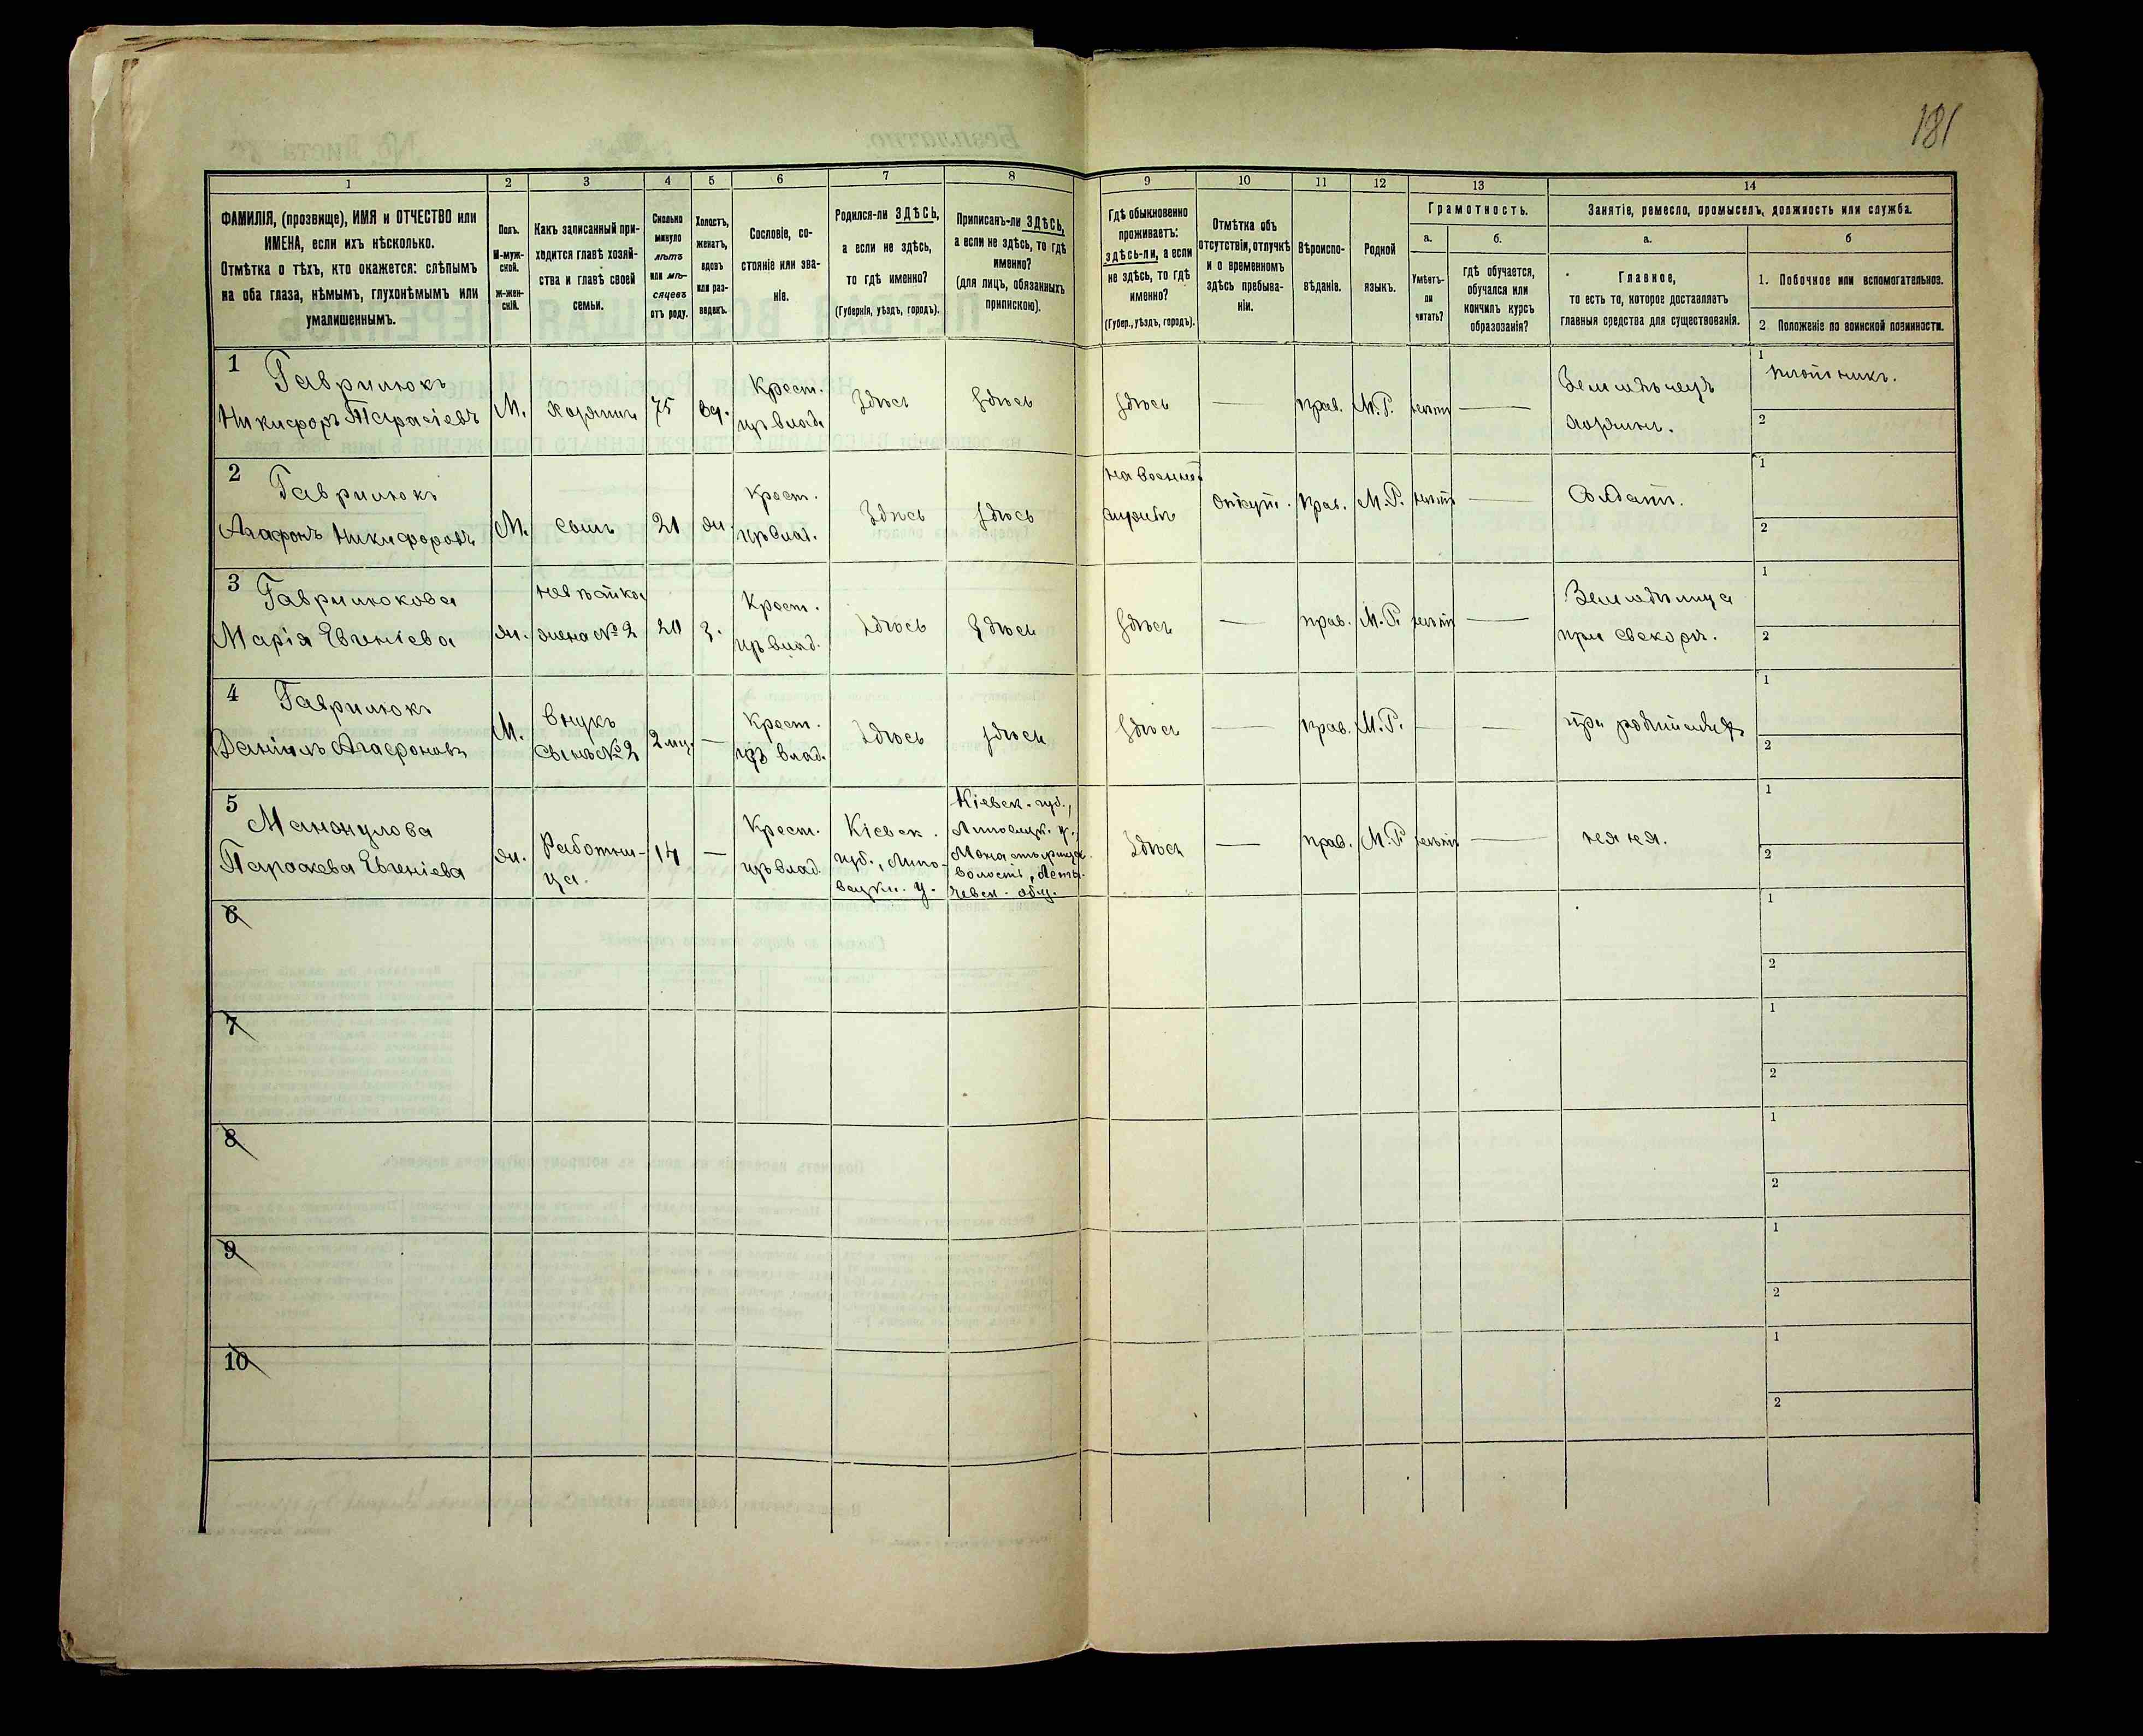 181
1 2 3 4 5 6 7 8 9 10 11 12 13 14
ФАМИЛІЯ, (прозвище), ИМЯ и ОТЧЕСТВО или
ИМЕНА, если ихъ нѣсколько.
Отмѣтка о тѣхъ, кто окажется: слѣпымъ
на оба глаза, нѣмымъ, глухонѣмымъ или
умалишеннымъ.
Полъ.
М-муж-
ской.
Ж-жен-
скій.
Какъ записанный при-
ходится главѣ хозяй-
ства и главѣ своей
семьи.
Сколько
минуло
лѣтъ
или мѣ-
сяцевъ
отъ роду.
Холостъ,
женатъ,
вдовъ
или раз-
веденъ.
Сословіе, со-
стояніе или зва-
ніе.
Родился-ли ЗДѢСЬ,
а если не здѣсь,
то гдѣ именно?
(Губернія, уѣздъ, городъ).
Приписанъ-ли ЗДѢСЬ,
а если не здѣсь, то гдѣ
именно?
(для лицъ, обязанныхъ
припискою).
Гдѣ обыкновенно
проживаетъ:
здѣсь-ли, а если
не здѣсь, то гдѣ
именно?
(Губер., уѣздъ, городъ).
Отмѣтка объ
отсутствіи, отлучкѣ
и о временномъ
здѣсь пребыва-
ніи.
Вѣроиспо-
вѣданіе.
Родной
языкъ.
Грамотность.
а.
Умѣетъ-
ли
читать?
б.
гдѣ обучается,
обучался или
кончилъ курсъ
образованія?
Занятіе, ремесло, промыселъ, должность или служба.
а.
Главное,
то есть то, которое доставляетъ
главныя средства для существованія.
б
1. Побочное или вспомогательное.
2 Положеніе по воинской повинности.
1
Гаврилюкъ
Никифоръ Тарасіевъ
М.
хозяинъ
75
вд.
Крест.
изъ влад.
Здѣсь
Здѣсь
Здѣсь
—
прав.
М.Р.
нѣтъ
—
Земледѣлецъ
хозяинъ.
1
плотникъ.
2
2
Гаврилюкъ
Агафонъ Никифоровъ
М.
сынъ
21
ж.
Крест.
изъ влад.
Здѣсь
Здѣсь
на военной
службѣ
Отсут.
Прав.
М.Р.
нѣтъ
—
Солдатъ.
1
2
3
Гаврилюкова
Марія Евгеніева
ж.
невѣстка
жена №2
20
з.
Крест.
изъ влад.
Здѣсь
Здѣсь
Здѣсь
—
прав.
М.Р.
нѣтъ
—
Земледѣлица
при свекорѣ.
1
2
4
Гаврилюкъ
Даніилъ Агафоновъ
М.
внукъ
сынъ №2
2 мц.
—
Крест.
изъ влад.
Здѣсь
Здѣсь
Здѣсь
—
прав.
М.Р.
—
—
при родителяхъ
1
2
5
Параскева Евгеніева
ж.
Работни-
ца.
14
—
Крест.
изъ влад.
Кіевск.
губ., Липо-
вецк. у.
Кіевск. губ.,
Липовецк. у.,
Монастырищ.
волость,
общ.
Здѣсь
—
прав.
М.Р
нѣтъ
—
няня.
1
2
6
1
2
7
1
2
8
1
2
9
1
2
10
1
2